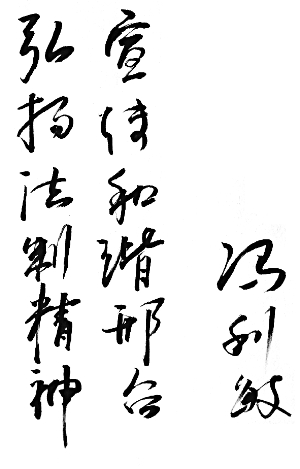 弘扬法制精神
宣传和谐邢台
冯利敏